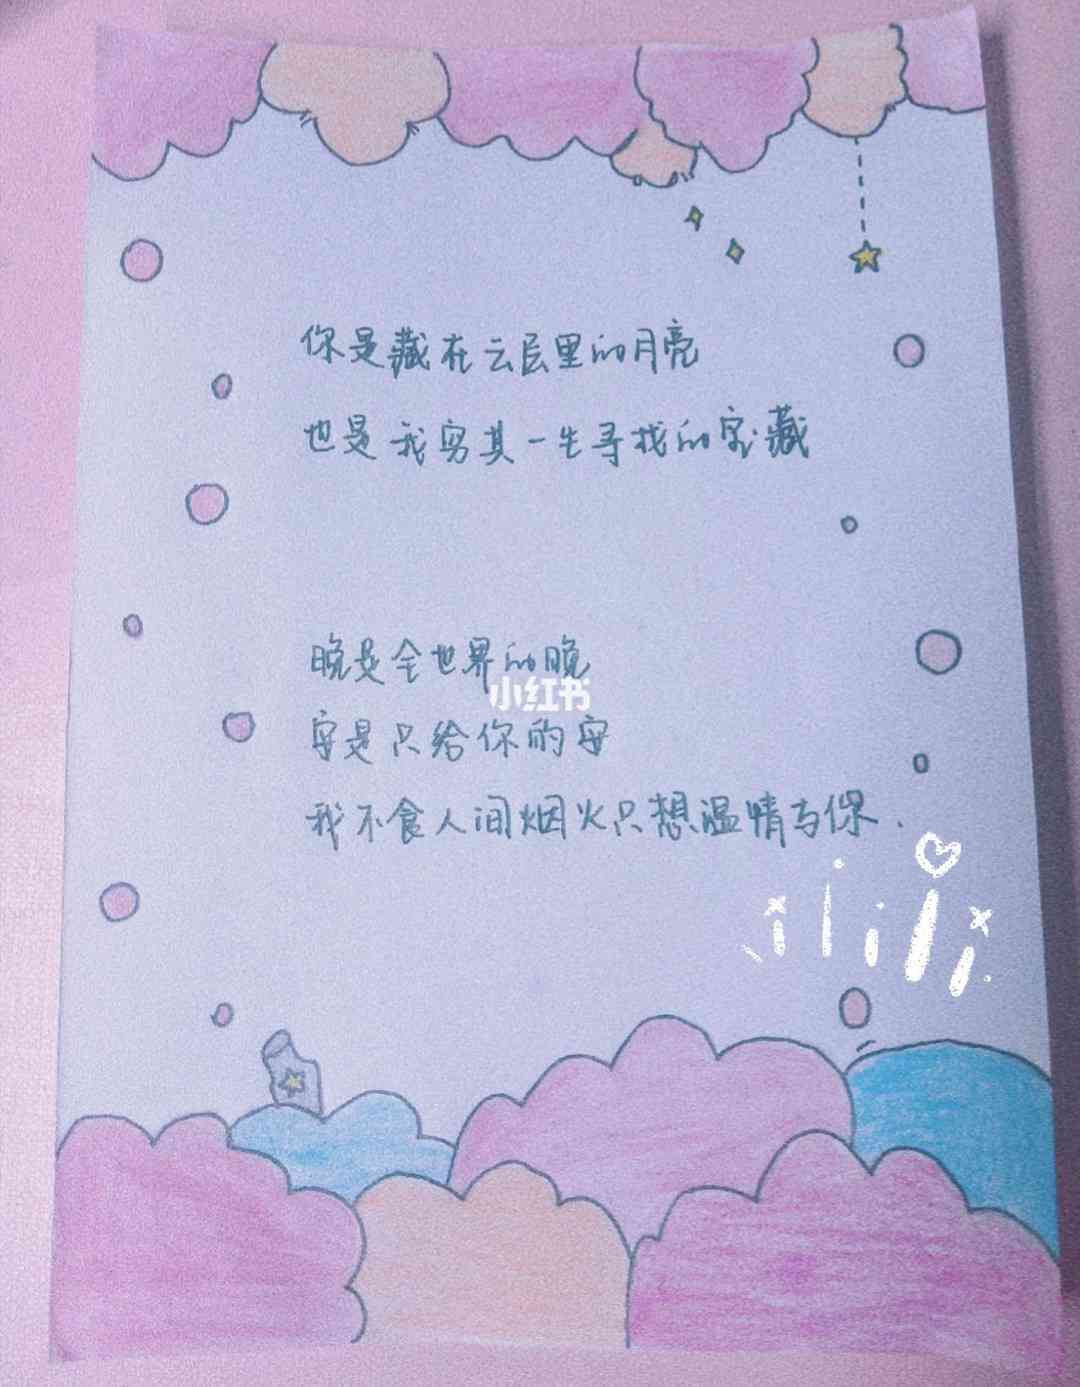 你是藏在云层里的月亮
也是我穷其一生寻找的宝藏
晚是全世界的晚
安是只给你的安
我不食人间烟火只想温情与你.
小红书